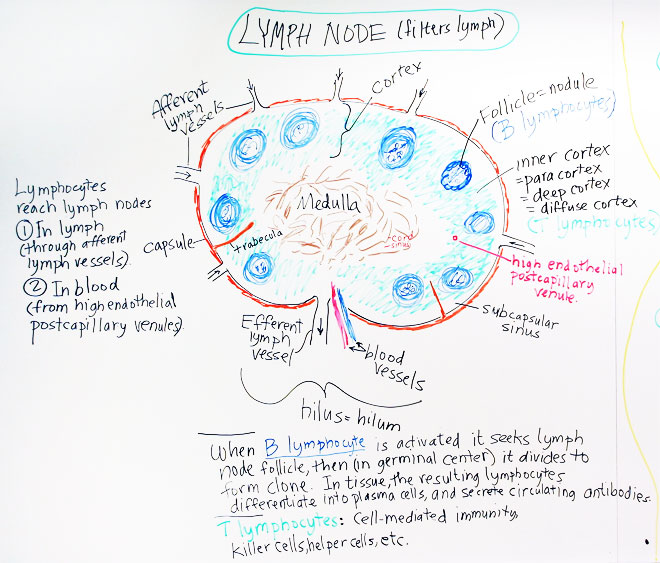 LYMPH NODE (filters lymph)
Afferent
lymph
vessels
cortex
Follicle = nodule
(B lymphocytes)
inner cortex
= para cortex
= deep cortex
= diffuse cortex
(T lymphocytes)
Lymphocytes
reach lymph nodes
① In lymph
(through afferent
lymph vessels).
② In blood
(from high endothelial
postcapillary venules).
capsule
trabecula
Medulla
cord
sinus
high endothelial
postcapillary
venule.
subcapsular
sinus
Efferent
lymph
vessel
blood
vessels
hilus = hilum
When B lymphocyte is activated it seeks lymph
node follicle, then (in germinal center) it divides to
form clone. In tissue, the resulting lymphocytes
differentiate into plasma cells, and secrete circulating antibodies.
T lymphocytes: Cell-mediated immunity,
killer cells, helper cells, etc.